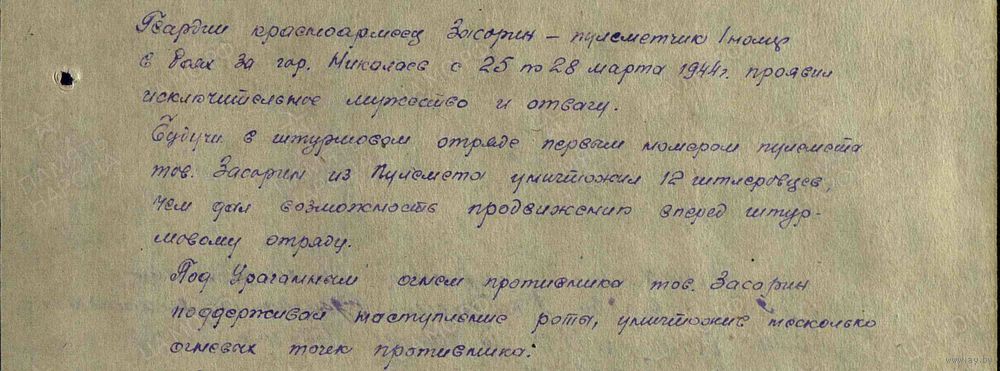 Гвардии красноармеец Засорин – пулеметчик 1 номер
в боях за гор. Николаев с 25 по 28 марта 1944 г. проявил
исключительное мужество и отвагу.
Будучи в штурмовом отряде первым номером пулемета
тов. Засорин из пулемета уничтожил 12 гитлеровцев,
чем дал возможность продвижению вперед штур-
мовому отряду.
Под ураганным огнем противника тов. Засорин
поддерживал наступление роты, уничтожив несколько
огневых точек противника.
www.ay.by